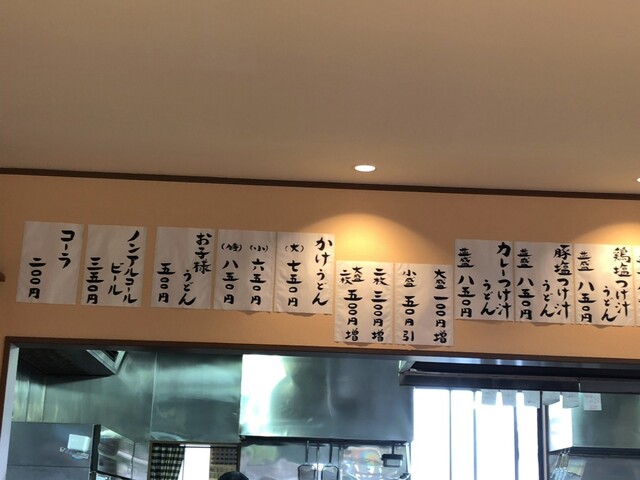 鶏塩つけ汁
うどん
並盛 八五〇円
豚塩つけ汁
うどん
並盛 八五〇円
カレーつけ汁
うどん
並盛 八五〇円
大盛 一〇〇円増
小盛 五〇円引
二枚 三〇〇円増
大盛二枚 五〇〇円増
かけうどん
(大) 七五〇円
(小) 六五〇円
八五〇円
お子様
うどん
五〇〇円
ノンアルコール
ビール
三五〇円
コーラ
二〇〇円